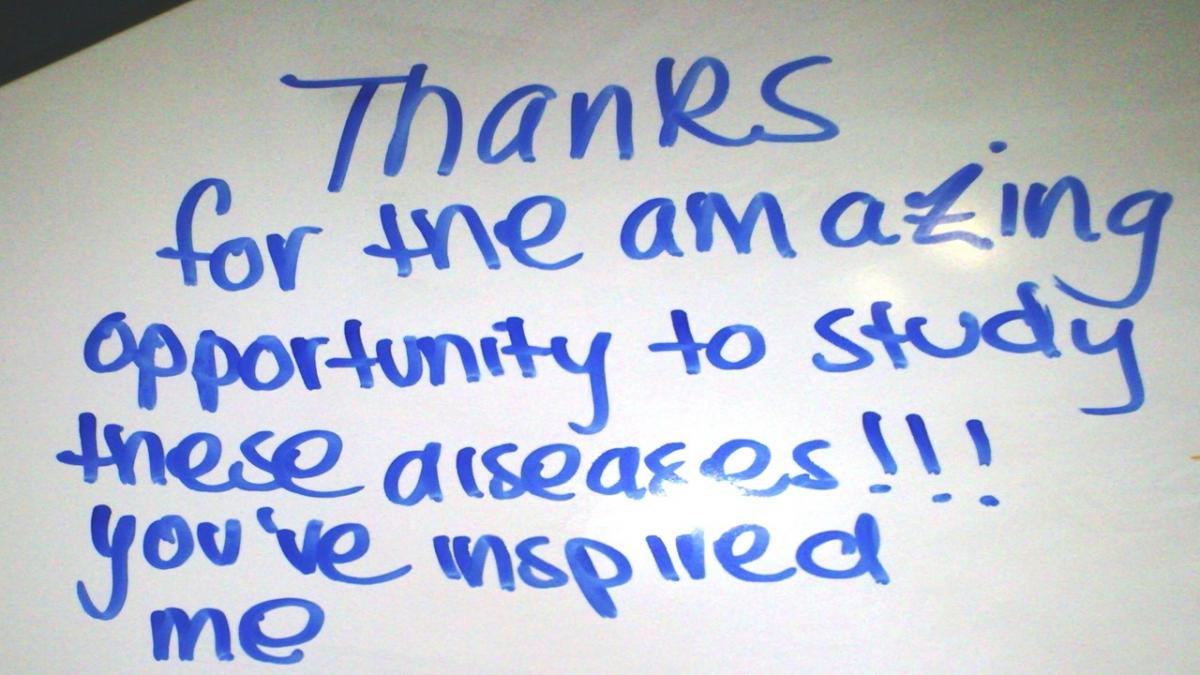 Thanks
for the amazing
opportunity to study
these diseases!!!
you've inspired
me